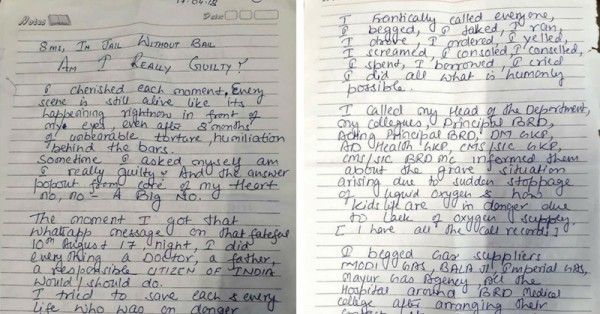 17.04.18
Notes
Date:
8 MS, IN JAIL WITHOUT BAIL
AM I REALLY GUILTY?
I cherished each moment, Every
scene is still alive like its
happening right now in front of
my eyes, even after 8 months
of unbearable torture, humiliation
behind the bars.
Sometime I asked myself am
I really guilty & And the answer
popout from core of my Heart
no, no - A Big NO.
The moment I got that
Whatsapp message on that fateful
10th August 17, night, I did
everything a Doctor, a father,
a responsible CITIZEN OF INDIA
would/should do.
I tried to save each & every
life who was on danger
I frantically called everyone,
I begged, I talked, I ran,
I drove, I ordered, I yelled,
I screamed, I consoled, I conselled,
I spent, I borrowed, I cried
I did all what is humanly
possible.
I called my Head of the Department,
my collegues, Principal BRD,
Acting Principal BRD, DM GKP,
AD Health GKP, CMS/SIC GKP,
CMS/SIC BRD MC informed them
about the grave situation
arising due to sudden stoppage
of liquid oxygen & how
kids life are in danger due
to lack of oxygen supply.
[I have all the call records]
I begged Gas suppliers
MODI GAS, BALA JI, Imperial GAS,
Mayur Gas Agency, All the
Hospital around BRD Medical
college after arranging their